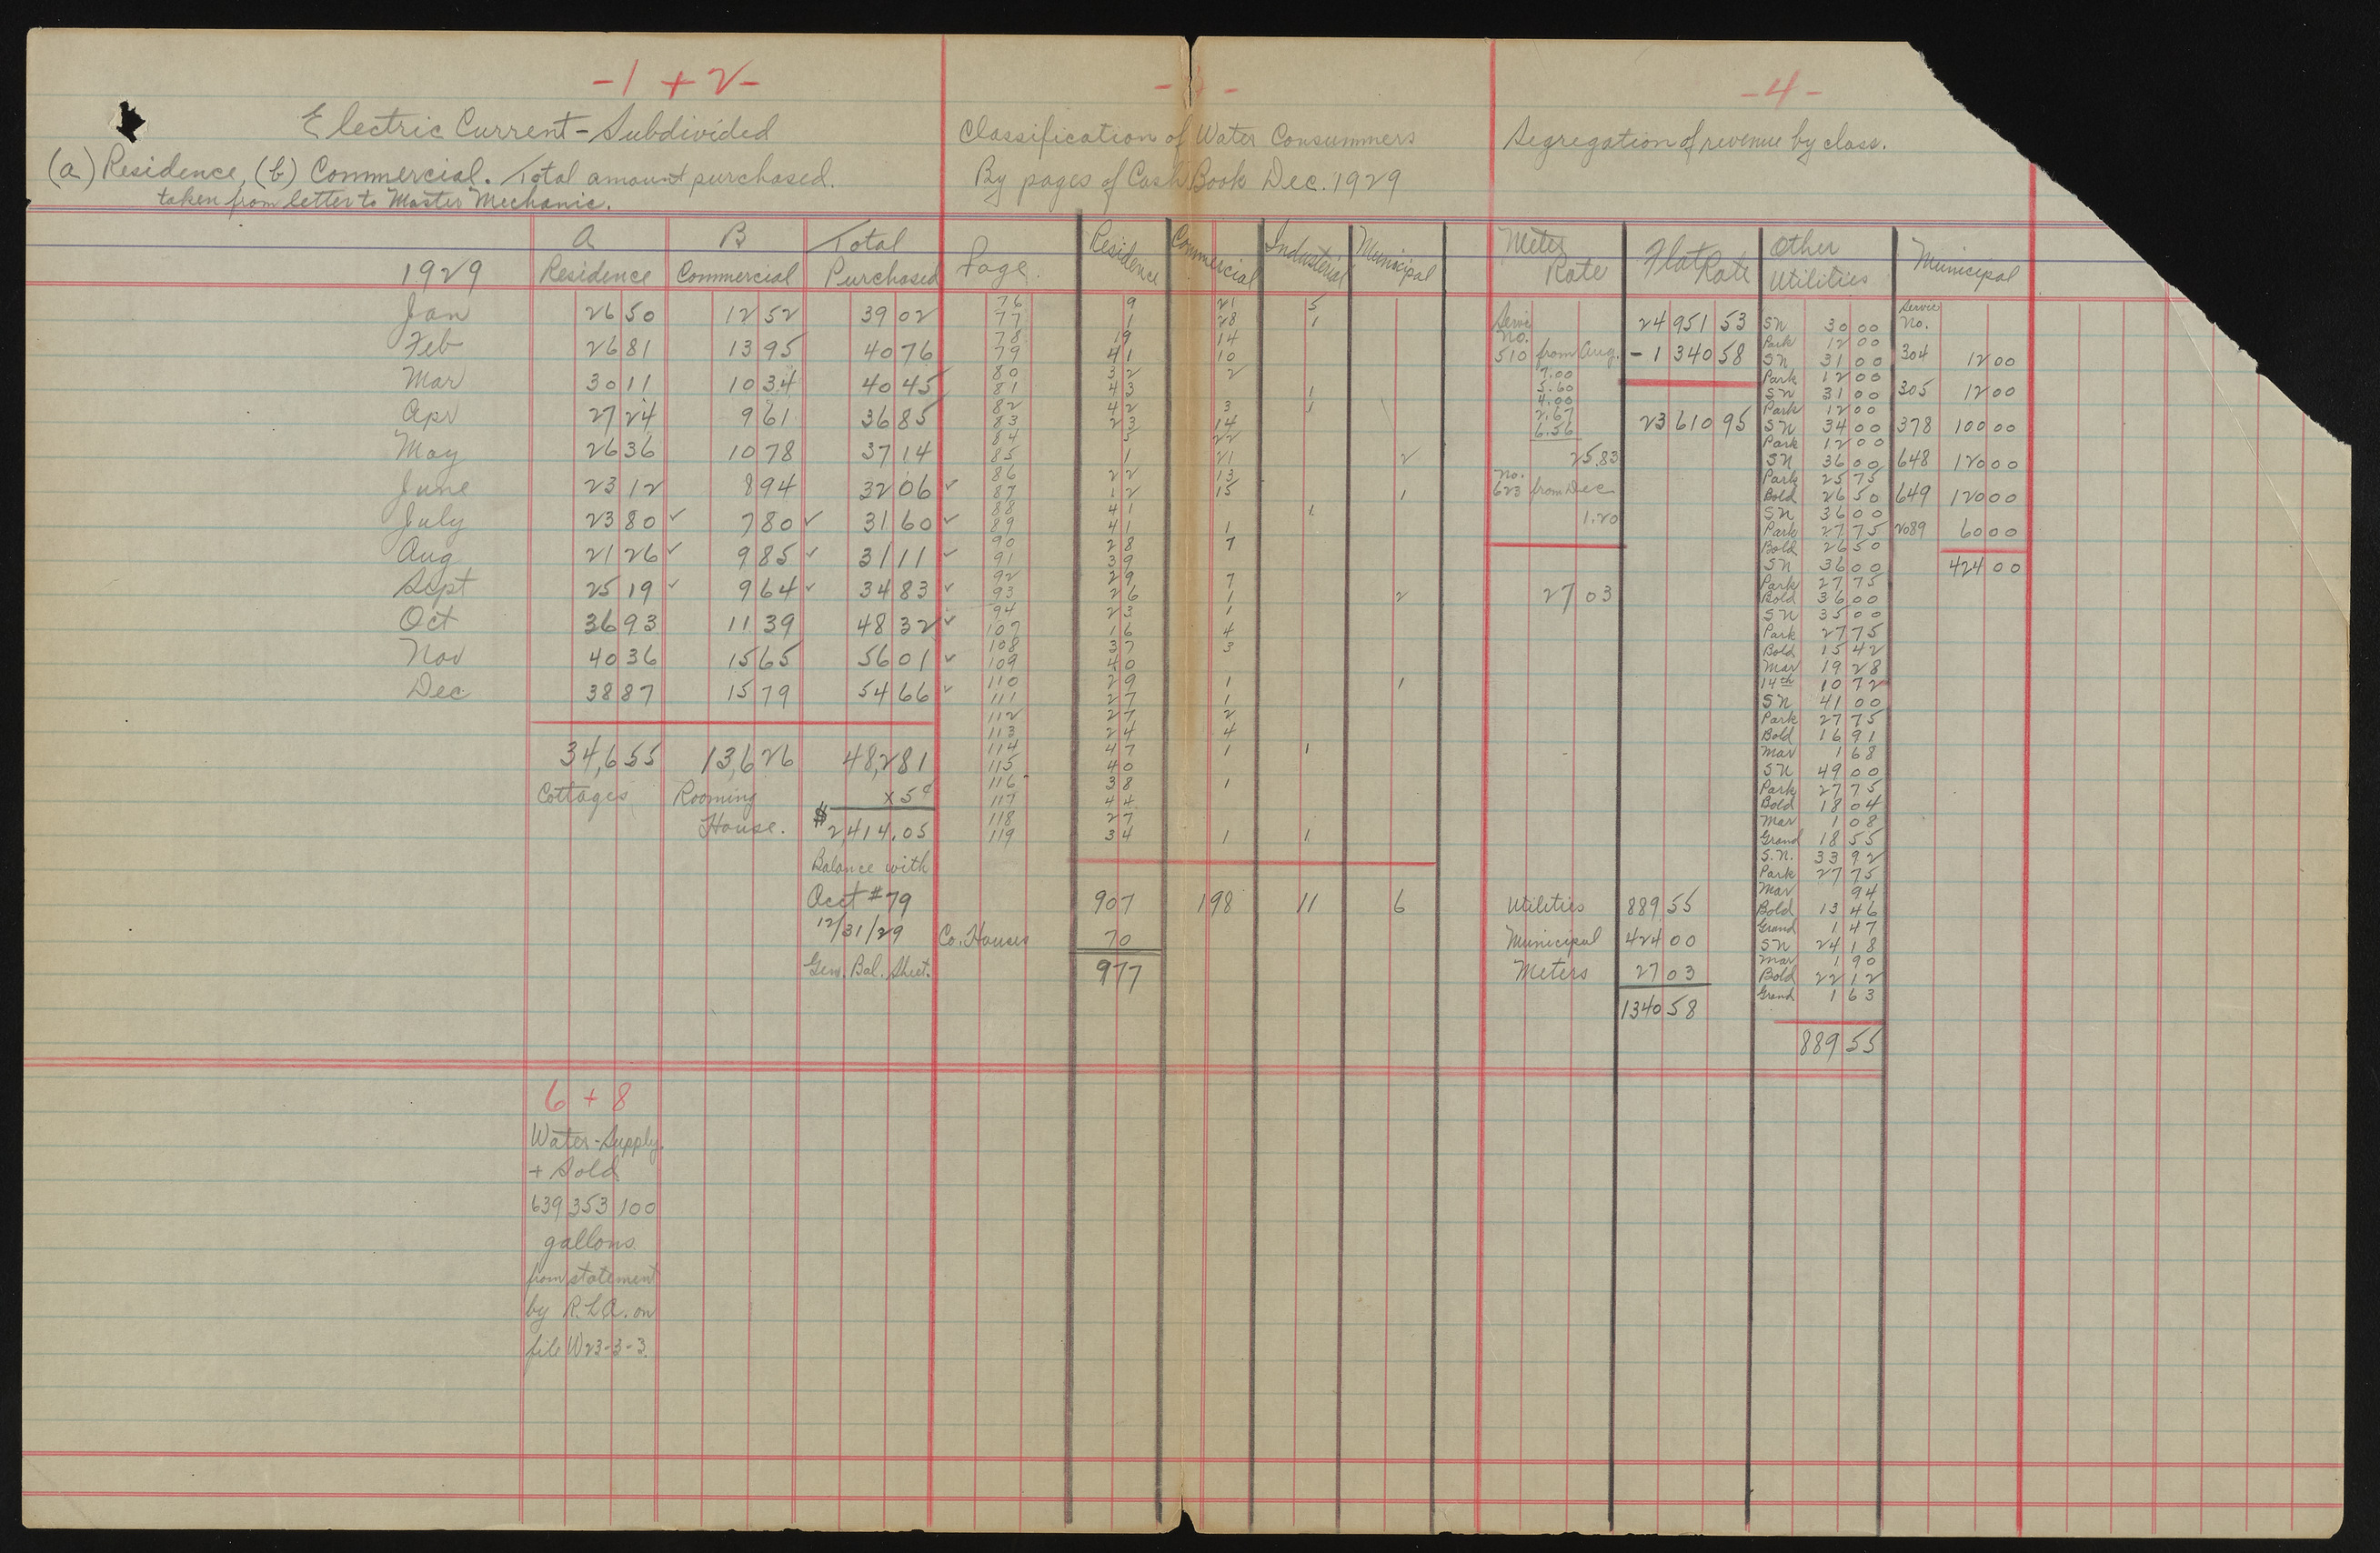 -1 + 2-
Electric Current - Subdivided
(a) Residence, (b) Commercial. Total amount purchased.
taken from letter to Master Mechanic.
1929 A Residence B Commercial Total Purchased
Jan 2650 1252 3902
Feb 2681 1395 4076
Mar 3011 1034 4045
Apr 2724 961 3685
May 2636 1078 3714
June 2312 894 3206 ✓
July 2380 ✓ 780 ✓ 3160 ✓
Aug 2126 ✓ 985 ✓ 3111 ✓
Sept 2519 ✓ 964 ✓ 3483 ✓
Oct 3693 1139 4832 ✓
Nov 4036 1565 5601 ✓
Dec. 3887 1579 5466 ✓
34,655 13,626 48,281
Cottages Rooming House. x 5¢
$2,414.05
Balance with
Acct #79
12/31/29
Gen. Bal. Sheet.
6 + 8
Water-Supply.
+ Sold
639 353 100
gallons
from statement
by R.L.A. on
file W23-3-3.
Classification of Water Consummers
By pages of Cash Book Dec. 1929
Page. Residence Commercial Industerial Municipal
76 9 21 5
77 1 28 1
78 19 14
79 41 10
80 32 2
81 43 1
82 42 3 1
83 23 14
84 5 22
85 1 21 2
86 22 13
87 12 15 1
88 41 1
89 41 1
90 28 7
91 39
92 29 7
93 26 1 2
94 23 1
107 16 4
108 37 3
109 40
110 29 1 1
111 27 1
112 27 2
113 24 4
114 47 1 1
115 40
116 38 1
117 44
118 27
119 34 1 1
907 198 11 6
Co. Houses 70
977
-4-
Segregation of revenue by class.
Meter Rate Flat Rate Other Utilities Municipal
Servic
No.
510 from Aug.
7.00
5.60
4.00
2.67
6.56
25.83
No.
623 from Dec
1.20
27 03
24951 53
-1340 58
23610 95
SN 30 00
Park 12 00
SN 31 00
Park 12 00
SN 31 00
Park 12 00
SN 34 00
Park 12 00
SN 36 00
Park 25 75
Bold 26 50
SN 36 00
Park 27 75
Bold 26 50
SN 36 00
Park 27 75
Bold 36 00
SN 35 00
Park 27 75
Bold 15 42
Mar 19 28
14th 10 72
SN 41 00
Park 27 75
Bold 16 91
Mar 1 68
SN 49 00
Park 27 75
Bold 18 04
Mar 1 08
Grand 18 55
S.N. 33 92
Park 27 75
Mar 94
Bold 13 46
Grand 1 47
SN 24 18
Mar 1 90
Bold 22 12
Grand 1 63
889 55
Servic
No.
304 12 00
305 12 00
378 100 00
648 120 00
649 120 00
2089 60 00
424 00
Utilities 889 55
Municipal 424 00
Meters 27 03
1340 58